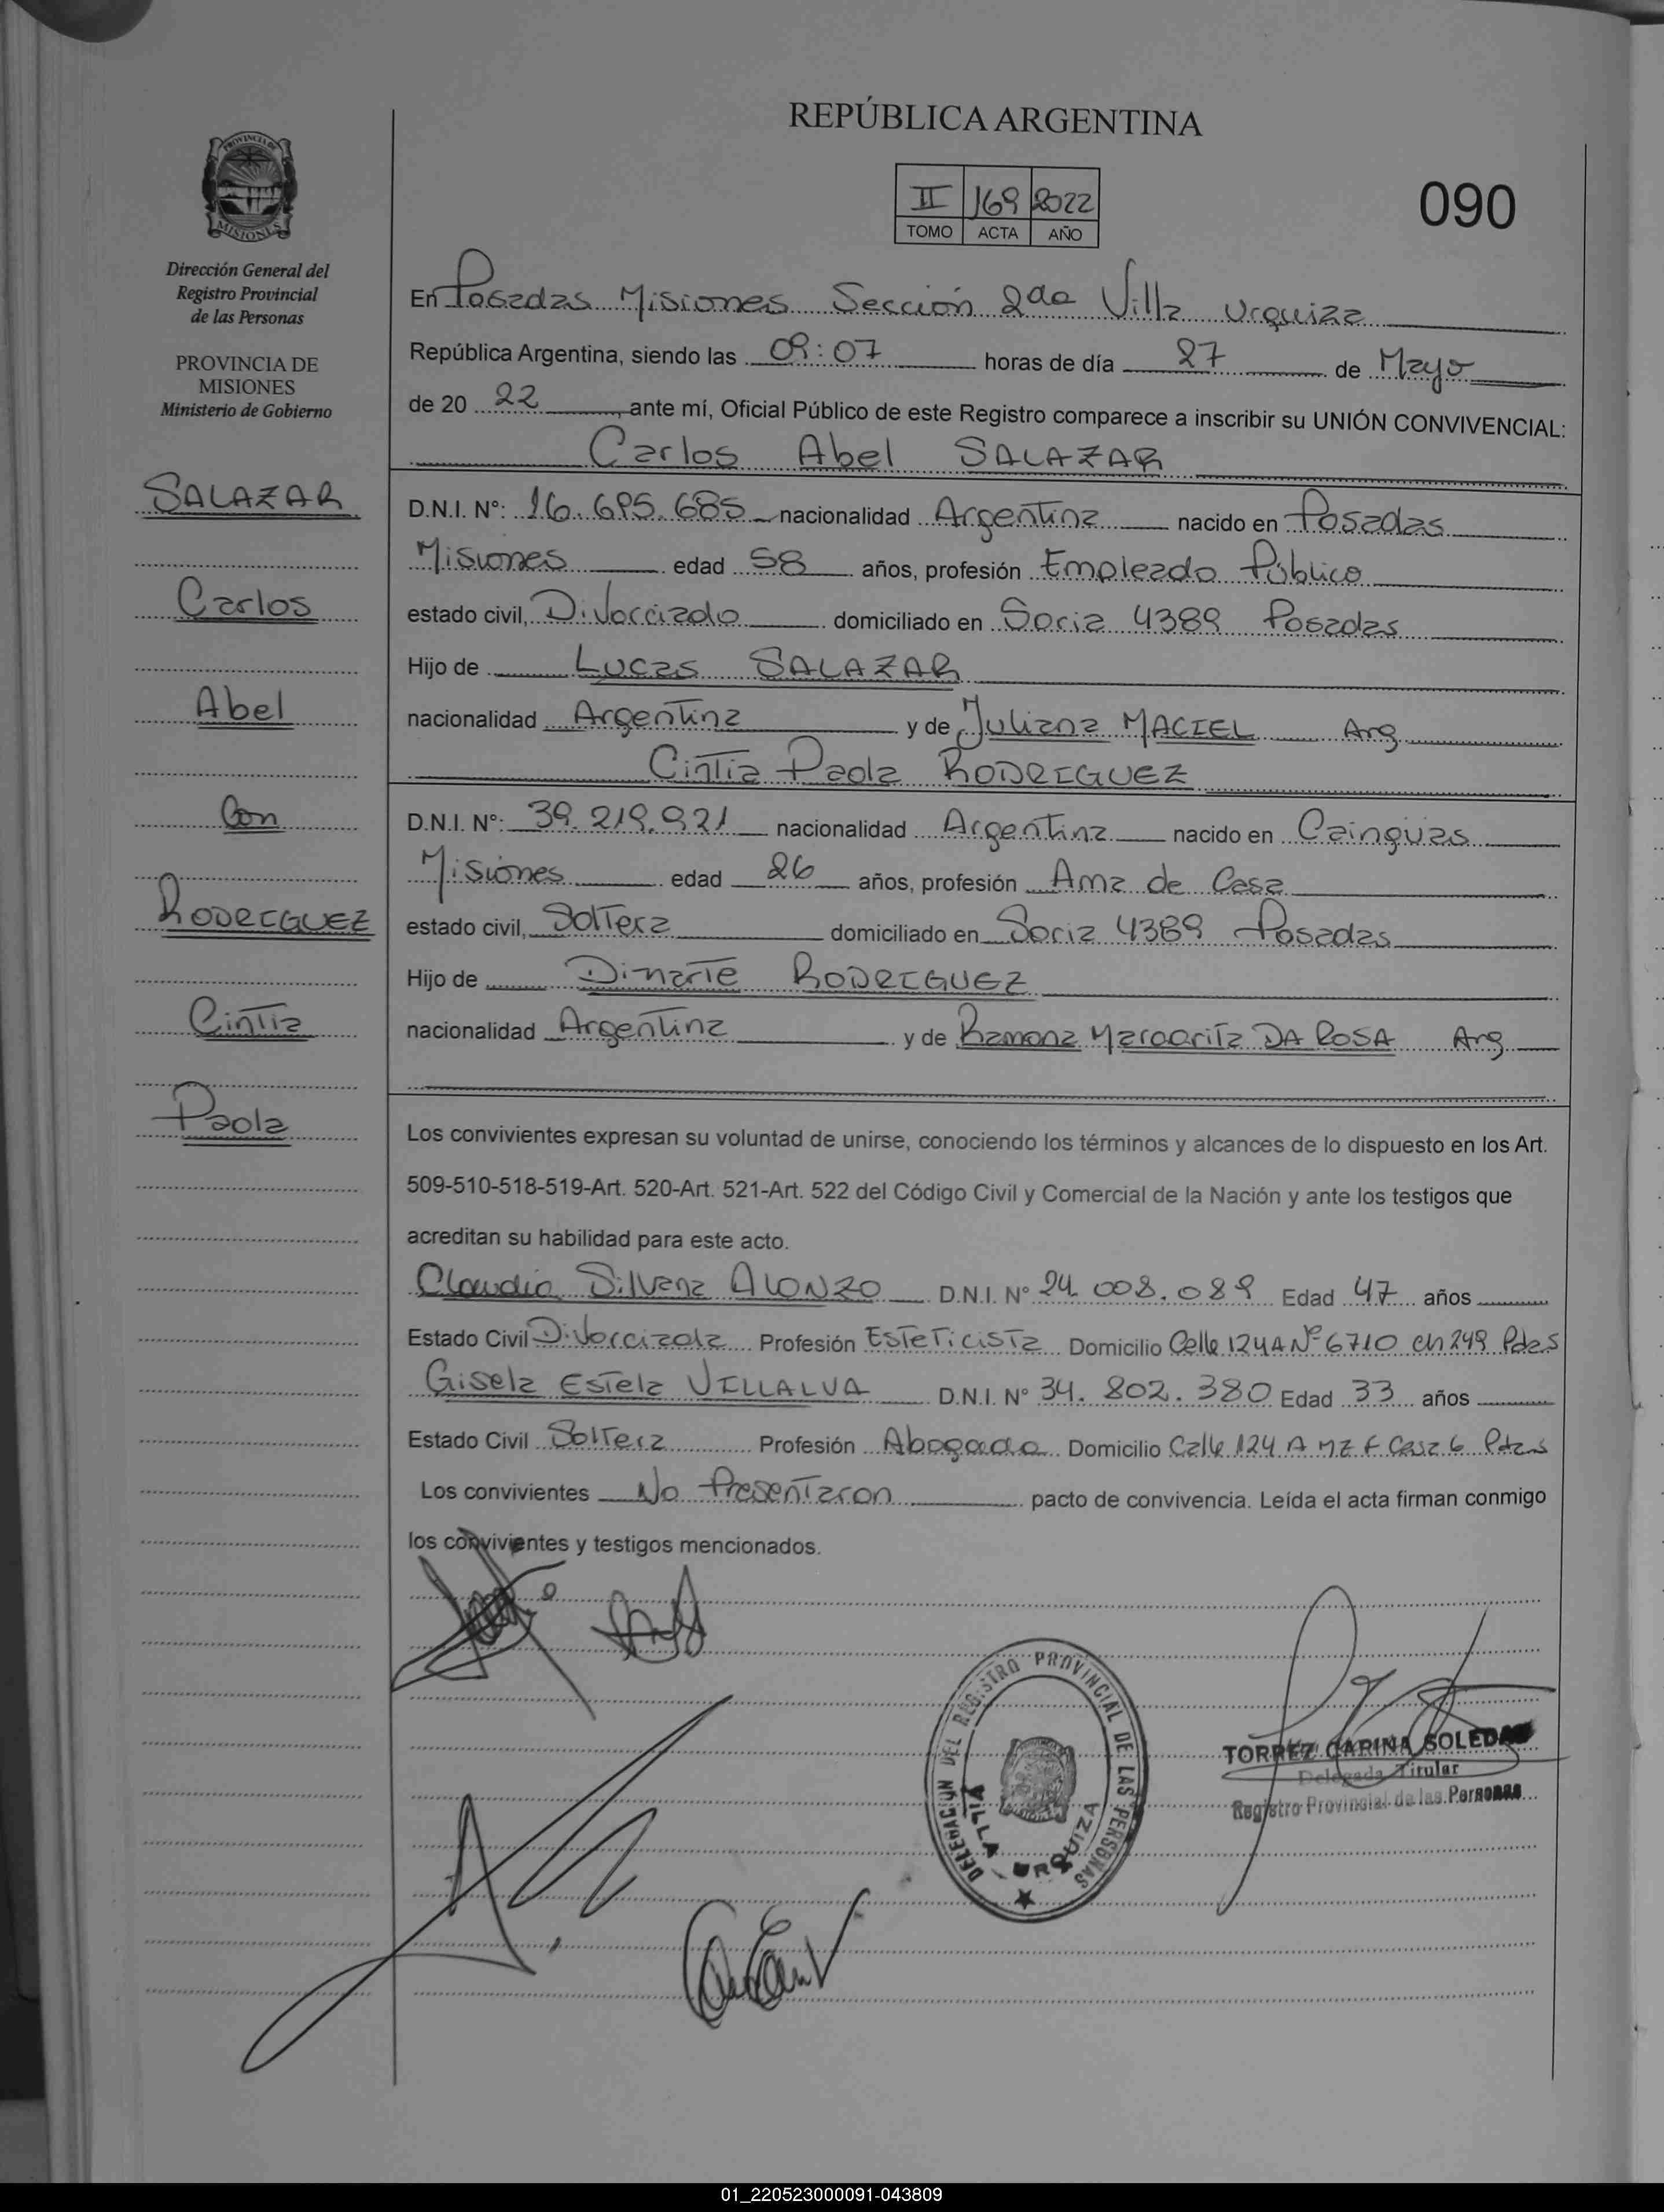 REPÚBLICA ARGENTINA
PROVINCIA DE
MISIONES
II 169 2022
TOMO ACTA AÑO
090
Dirección General del
Registro Provincial
de las Personas
PROVINCIA DE
MISIONES
Ministerio de Gobierno
SALAZAR
Carlos
Abel
Con
RODRIGUEZ
Cintia
Paola
En Posadas Misiones Sección 2da Villa Urquiza
República Argentina, siendo las 09:07 horas de día 27 de Mayo
de 20 22, ante mí, Oficial Público de este Registro comparece a inscribir su UNIÓN CONVIVENCIAL:
Carlos Abel SALAZAR
D.N.I. N°: 16.695.685 nacionalidad Argentina nacido en Posadas
Misiones edad 58 años, profesión Empleado Público
estado civil, Divorciado domiciliado en Soria 4389 Posadas
Hijo de Lucas SALAZAR
nacionalidad Argentina y de Juliana MACIEL Arg
Cintia Paola RODRIGUEZ
D.N.I. N°: 39.219.921 nacionalidad Argentina nacido en Cainguas
Misiones edad 26 años, profesión Ama de Casa
estado civil, Soltera domiciliado en Soria 4389 Posadas
Hijo de Dinarte RODRIGUEZ
nacionalidad Argentina y de Ramona Margarita DA ROSA Arg
Los convivientes expresan su voluntad de unirse, conociendo los términos y alcances de lo dispuesto en los Art.
509-510-518-519-Art. 520-Art. 521-Art. 522 del Código Civil y Comercial de la Nación y ante los testigos que
acreditan su habilidad para este acto.
Claudia Silvana ALONZO D.N.I. N° 24.008.089 Edad 47 años
Estado Civil Divorciada Profesión Esteticista Domicilio Calle 124A N° 6710 ch 249 Pdas
Gisela Estela VILLALVA D.N.I. N° 34.802.380 Edad 33 años
Estado Civil Soltera Profesión Abogada Domicilio Calle 124 A MZ F Casa 6 Pdas
Los convivientes No Presentaron pacto de convivencia. Leída el acta firman conmigo
los convivientes y testigos mencionados.
DELEGACIÓN DEL REGISTRO PROVINCIAL DE LAS PERSONAS
VILLA URQUIZA
TORREZ CARINA SOLEDAD
Delegada Titular
Registro Provincial de las Personas
01_220523000091-043809